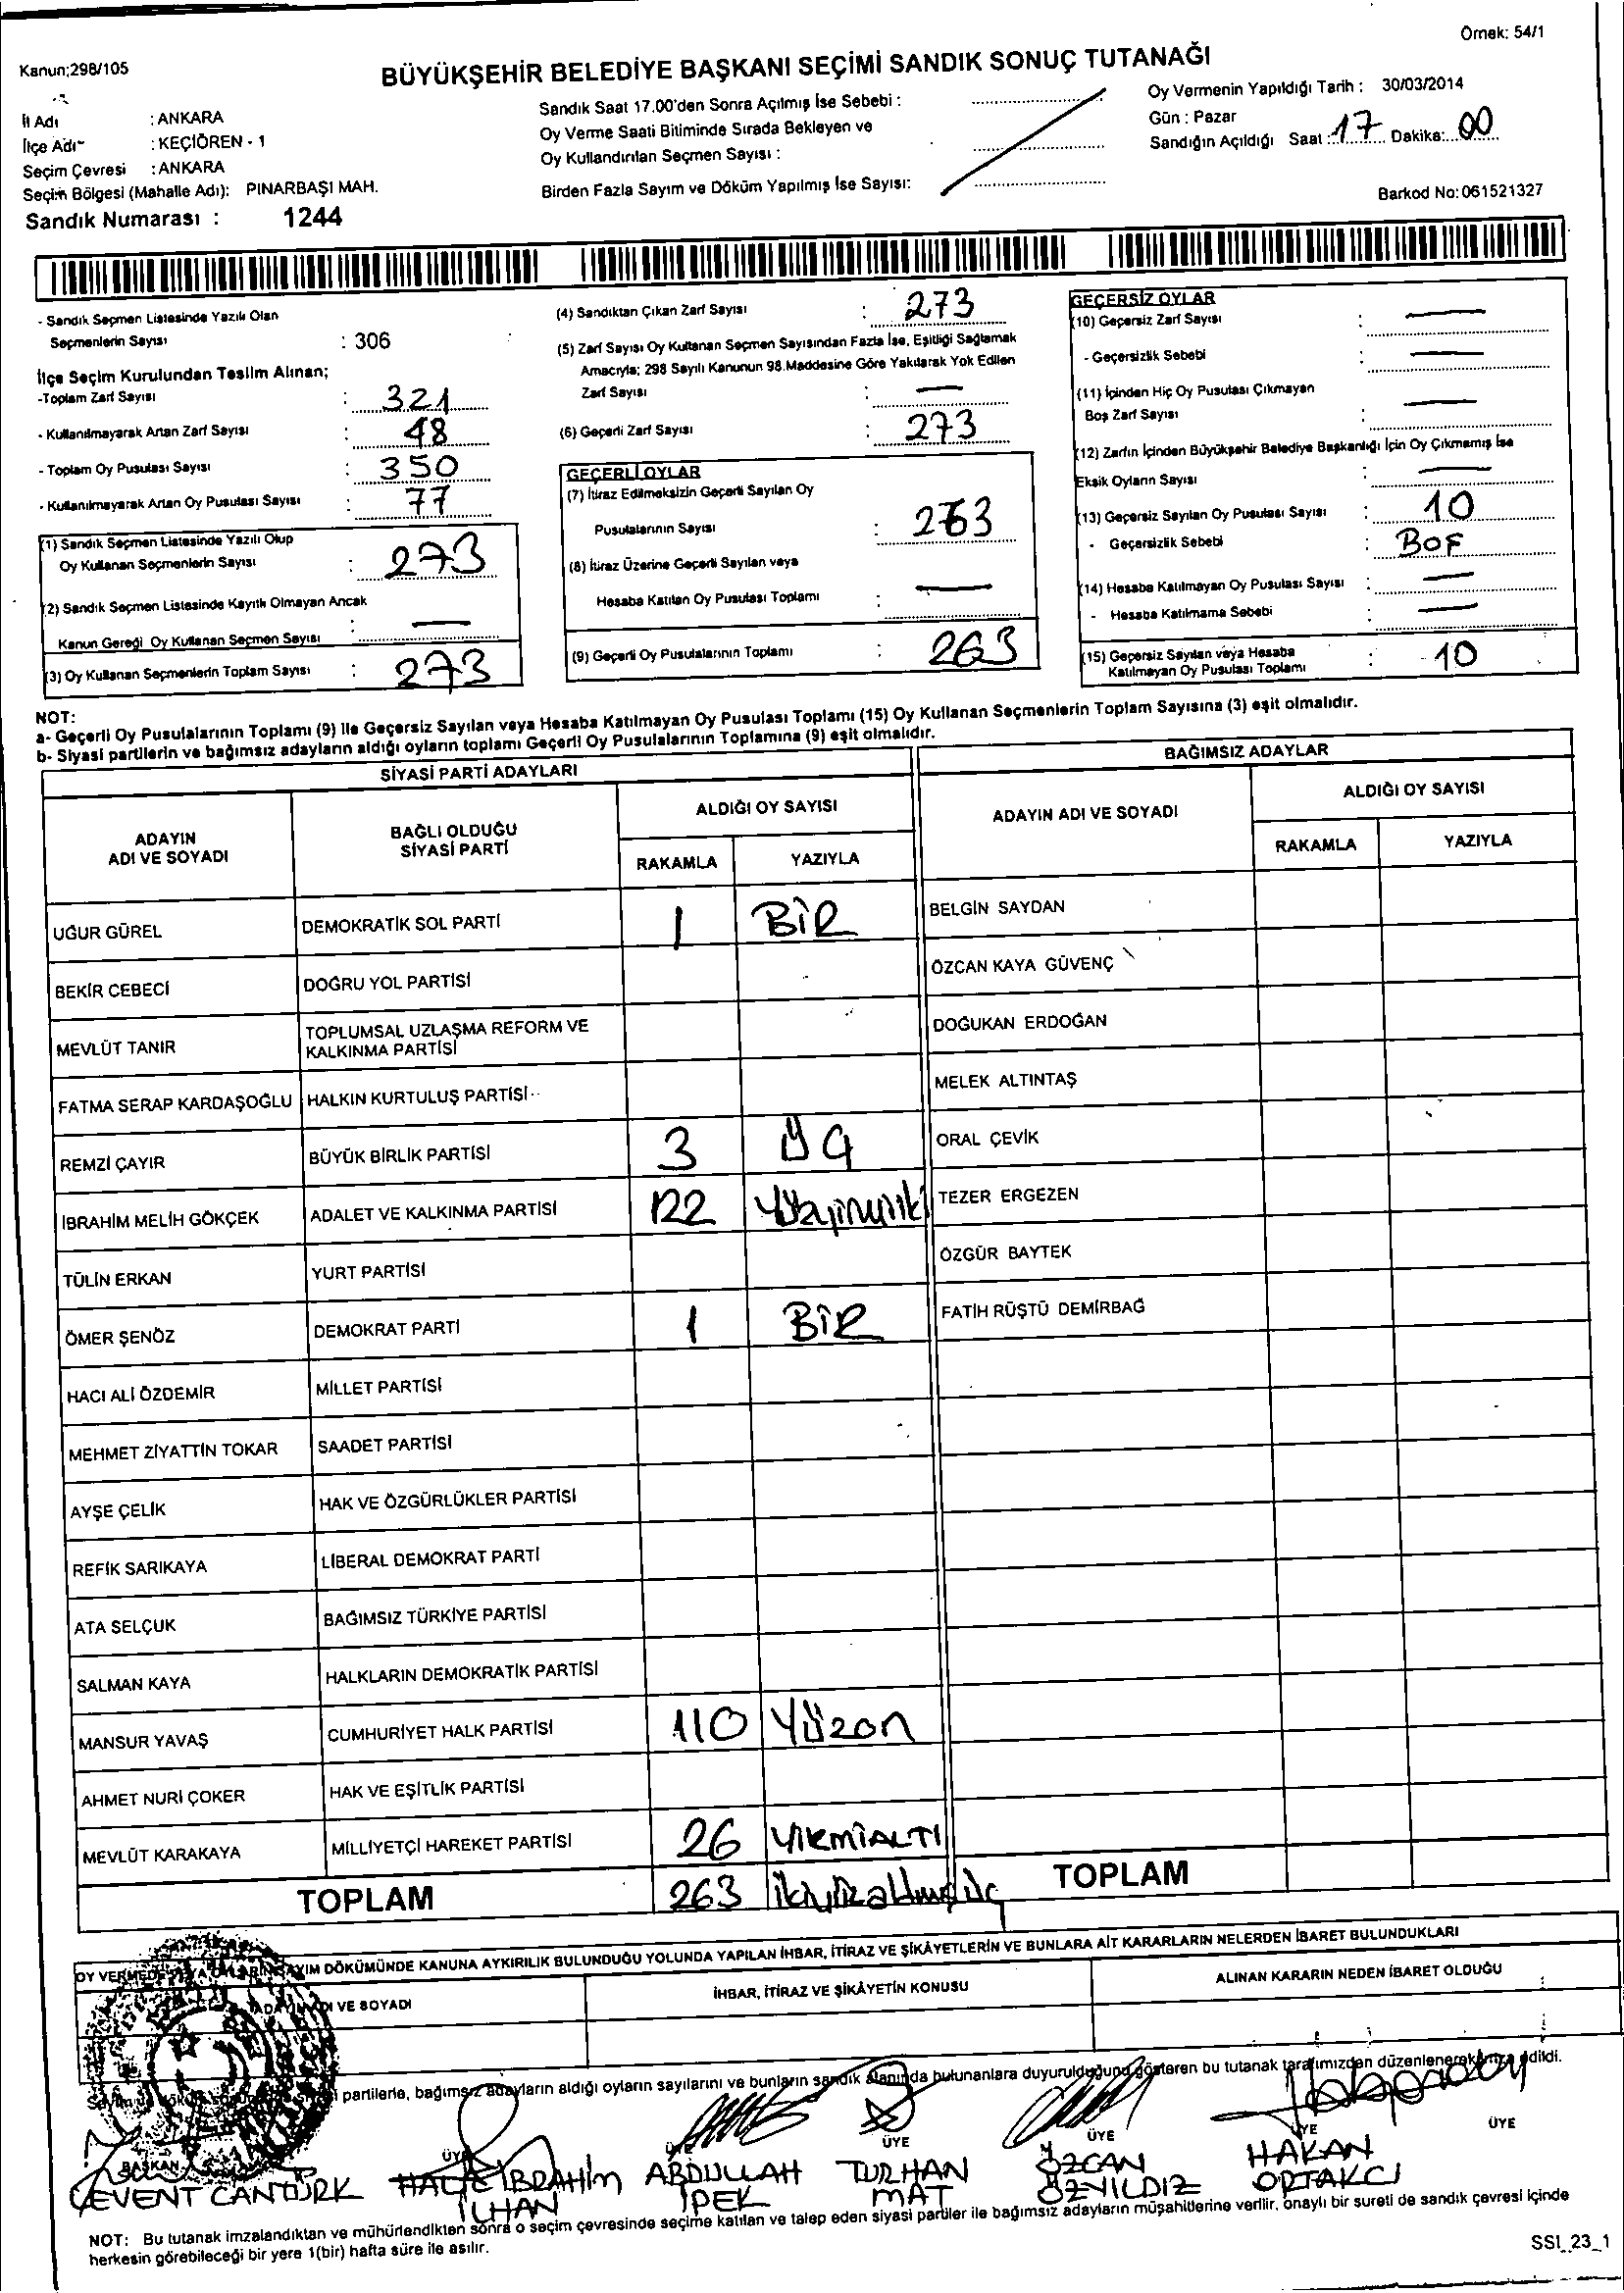 Örnek: 54/1
Kanun;298/105
BÜYÜKŞEHİR BELEDİYE BAŞKANI SEÇİMİ SANDIK SONUÇ TUTANAĞI
İl Adı : ANKARA
İlçe Adı : KEÇİÖREN - 1
Seçim Çevresi : ANKARA
Seçim Bölgesi (Mahalle Adı): PINARBAŞI MAH.
Sandık Numarası : 1244
Sandık Saat 17.00'den Sonra Açılmış İse Sebebi :
Oy Verme Saati Bitiminde Sırada Bekleyen ve
Oy Kullandırılan Seçmen Sayısı :
Birden Fazla Sayım ve Döküm Yapılmış İse Sayısı:
Oy Vermenin Yapıldığı Tarih : 30/03/2014
Gün : Pazar
Sandığın Açıldığı Saat : 17 Dakika: 00
Barkod No: 061521327
- Sandık Seçmen Listesinde Yazılı Olan
Seçmenlerin Sayısı : 306
İlçe Seçim Kurulundan Teslim Alınan;
-Toplam Zarf Sayısı : 321
- Kullanılmayarak Artan Zarf Sayısı : 48
- Toplam Oy Pusulası Sayısı : 350
- Kullanılmayarak Artan Oy Pusulası Sayısı : 77
(1) Sandık Seçmen Listesinde Yazılı Olup
Oy Kullanan Seçmenlerin Sayısı : 273
(2) Sandık Seçmen Listesinde Kayıtlı Olmayan Ancak
Kanun Gereği Oy Kullanan Seçmen Sayısı : —
(3) Oy Kullanan Seçmenlerin Toplam Sayısı : 273
(4) Sandıktan Çıkan Zarf Sayısı : 273
(5) Zarf Sayısı Oy Kullanan Seçmen Sayısından Fazla İse, Eşitliği Sağlamak
Amacıyla; 298 Sayılı Kanunun 98.Maddesine Göre Yakılarak Yok Edilen
Zarf Sayısı : —
(6) Geçerli Zarf Sayısı : 273
GEÇERLİ OYLAR
(7) İtiraz Edilmeksizin Geçerli Sayılan Oy
Pusulalarının Sayısı : 263
(8) İtiraz Üzerine Geçerli Sayılan veya
Hesaba Katılan Oy Pusulası Toplamı : —
(9) Geçerli Oy Pusulalarının Toplamı : 263
GEÇERSİZ OYLAR
(10) Geçersiz Zarf Sayısı : —
- Geçersizlik Sebebi : —
(11) İçinden Hiç Oy Pusulası Çıkmayan
Boş Zarf Sayısı : —
(12) Zarfın İçinden Büyükşehir Belediye Başkanlığı İçin Oy Çıkmamış İse
Eksik Oyların Sayısı : —
(13) Geçersiz Sayılan Oy Pusulası Sayısı : 10
- Geçersizlik Sebebi : BOŞ
(14) Hesaba Katılmayan Oy Pusulası Sayısı : —
- Hesaba Katılmama Sebebi : —
(15) Geçersiz Sayılan veya Hesaba
Katılmayan Oy Pusulası Toplamı : 10
NOT:
a- Geçerli Oy Pusulalarının Toplamı (9) ile Geçersiz Sayılan veya Hesaba Katılmayan Oy Pusulası Toplamı (15) Oy Kullanan Seçmenlerin Toplam Sayısına (3) eşit olmalıdır.
b- Siyasi partilerin ve bağımsız adayların aldığı oyların toplamı Geçerli Oy Pusulalarının Toplamına (9) eşit olmalıdır.
SİYASİ PARTİ ADAYLARI
ADAYIN ADI VE SOYADI BAĞLI OLDUĞU SİYASİ PARTİ ALDIĞI OY SAYISI
RAKAMLA YAZIYLA
UĞUR GÜREL DEMOKRATİK SOL PARTİ 1 BİR
BEKİR CEBECİ DOĞRU YOL PARTİSİ
MEVLÜT TANIR TOPLUMSAL UZLAŞMA REFORM VE KALKINMA PARTİSİ
FATMA SERAP KARDAŞOĞLU HALKIN KURTULUŞ PARTİSİ
REMZİ ÇAYIR BÜYÜK BİRLİK PARTİSİ 3 ÜÇ
İBRAHİM MELİH GÖKÇEK ADALET VE KALKINMA PARTİSİ 122 Yüzyirmiiki
TÜLİN ERKAN YURT PARTİSİ
ÖMER ŞENÖZ DEMOKRAT PARTİ 1 BİR
HACI ALİ ÖZDEMİR MİLLET PARTİSİ
MEHMET ZİYATTİN TOKAR SAADET PARTİSİ
AYŞE ÇELİK HAK VE ÖZGÜRLÜKLER PARTİSİ
REFİK SARIKAYA LİBERAL DEMOKRAT PARTİ
ATA SELÇUK BAĞIMSIZ TÜRKİYE PARTİSİ
SALMAN KAYA HALKLARIN DEMOKRATİK PARTİSİ
MANSUR YAVAŞ CUMHURİYET HALK PARTİSİ 110 Yüzon
AHMET NURİ ÇOKER HAK VE EŞİTLİK PARTİSİ
MEVLÜT KARAKAYA MİLLİYETÇİ HAREKET PARTİSİ 26 YİRMİALTI
TOPLAM 263 ikiyüzaltmışüç
BAĞIMSIZ ADAYLAR
ADAYIN ADI VE SOYADI ALDIĞI OY SAYISI
RAKAMLA YAZIYLA
BELGİN SAYDAN
ÖZCAN KAYA GÜVENÇ
DOĞUKAN ERDOĞAN
MELEK ALTINTAŞ
ORAL ÇEVİK
TEZER ERGEZEN
ÖZGÜR BAYTEK
FATİH RÜŞTÜ DEMİRBAĞ
TOPLAM
OY VERMEDE VEYA OYLARIN SAYIM DÖKÜMÜNDE KANUNA AYKIRILIK BULUNDUĞU YOLUNDA YAPILAN İHBAR, İTİRAZ VE ŞİKÂYETLERİN VE BUNLARA AİT KARARLARIN NELERDEN İBARET BULUNDUKLARI
ADAYIN ADI VE SOYADI İHBAR, İTİRAZ VE ŞİKÂYETİN KONUSU ALINAN KARARIN NEDEN İBARET OLDUĞU
partilerle, bağımsız adayların aldığı oyların sayılarını ve bunların sandık alanında bulunanlara duyurulduğunu gösteren bu tutanak tarafımızdan düzenlenerek imza edildi.
BAŞKAN ÜYE ÜYE ÜYE ÜYE ÜYE ÜYE
LEVENT CANTÜRK
HALİL İBRAHİM İLHAN
ABDULLAH İPEK
TURHAN MAT
ÖZCAN ÖZYILDIZ
HAKAN ORTAKCI
NOT: Bu tutanak imzalandıktan ve mühürlendikten sonra o seçim çevresinde seçime katılan ve talep eden siyasi partiler ile bağımsız adayların müşahitlerine verilir, onaylı bir sureti de sandık çevresi içinde
herkesin görebileceği bir yere 1(bir) hafta süre ile asılır.
SSI_23_1